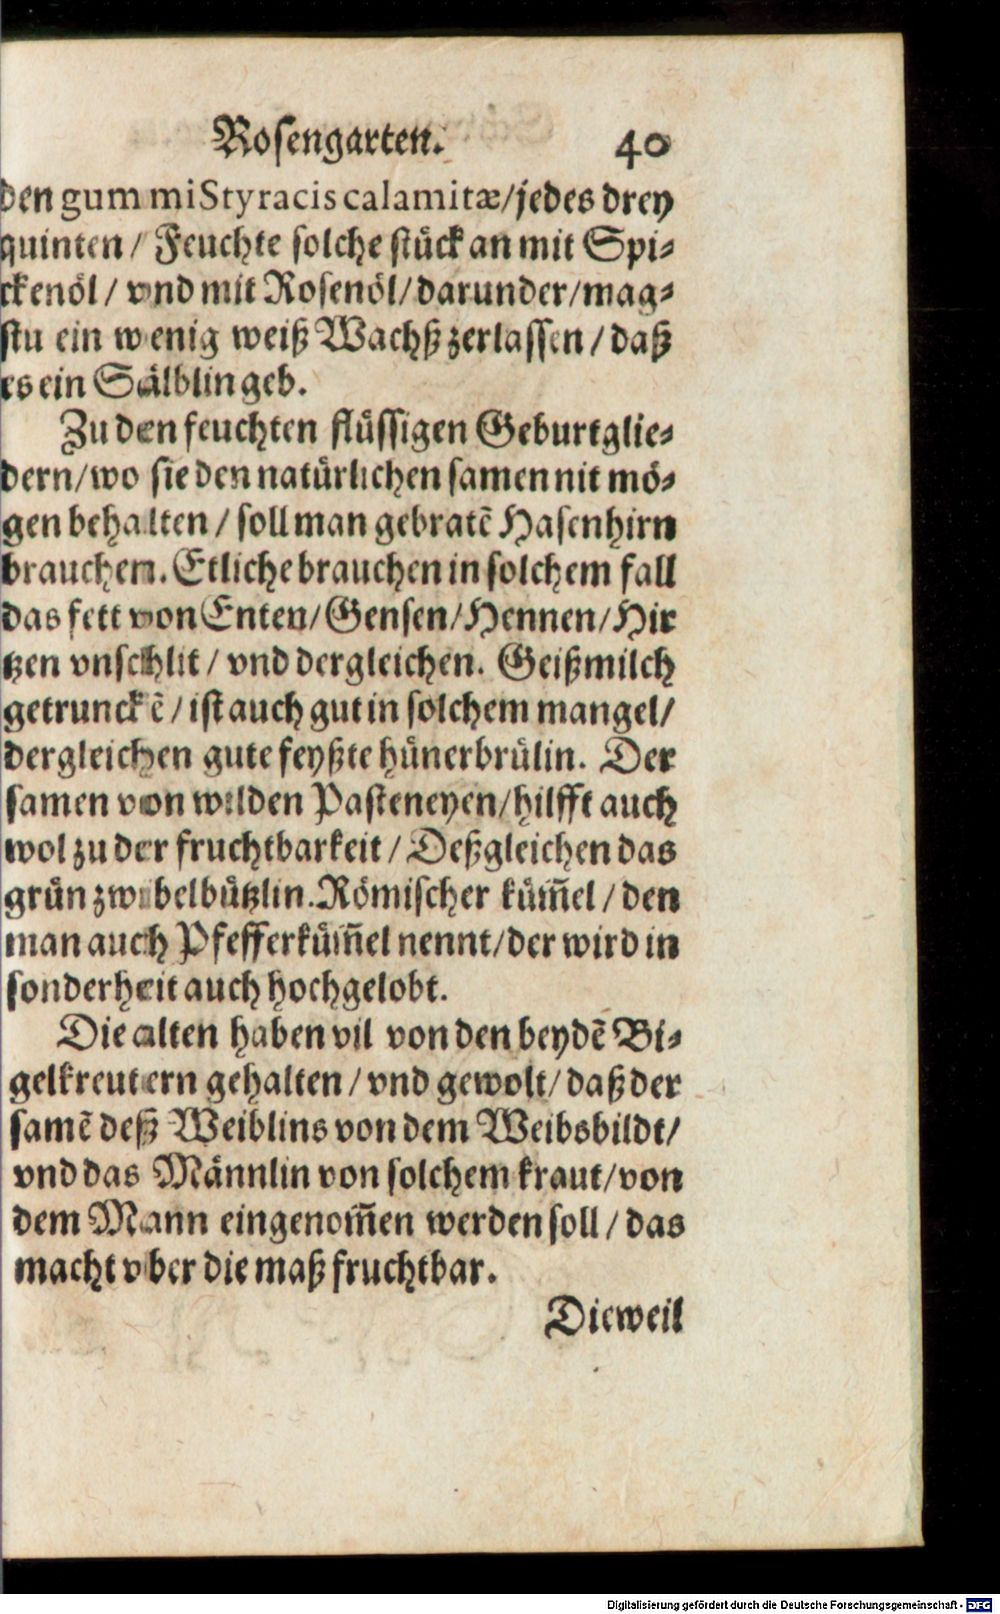 Rosengarten. 40
den gummi Styracis calamitæ/jedes drey
quinten/ Feuchte solche stück an mit Spi⸗
ckenöl/ vnd mit Rosenöl/darunder/mag⸗
stu ein wenig weiß Wachß zerlassen/daß
es ein Sälblin geb.
Zu den feuchten flüssigen Geburtglie⸗
dern/wo sie den natürlichen samen nit mö⸗
gen behalten/ soll man gebratē Hasenhirn
brauchen. Etliche brauchen in solchem fall
das fett von Enten/Gensen/Hennen/Hir
tzen vnschlit/ vnd dergleichen. Geißmilch
getrunckē/ ist auch gut in solchem mangel/
dergleichen gute feyßte hünerbrülin. Der
samen von wilden Pasteneyen/hilfft auch
wol zu der fruchtbarkeit/ Deßgleichen das
grün zwibelbützlin. Römischer küm̃el/ den
man auch Pfefferküm̃el nennt/der wird in
sonderheit auch hochgelobt.
Die alten haben vil von den beydē Bi⸗
gelkreutern gehalten/ vnd gewolt/ daß der
samē deß Weiblins von dem Weibsbildt/
vnd das Männlin von solchem kraut/von
dem Mann eingenom̃en werden soll/ das
macht vber die maß fruchtbar.
Dieweil
Digitalisierung gefördert durch die Deutsche Forschungsgemeinschaft - DFG